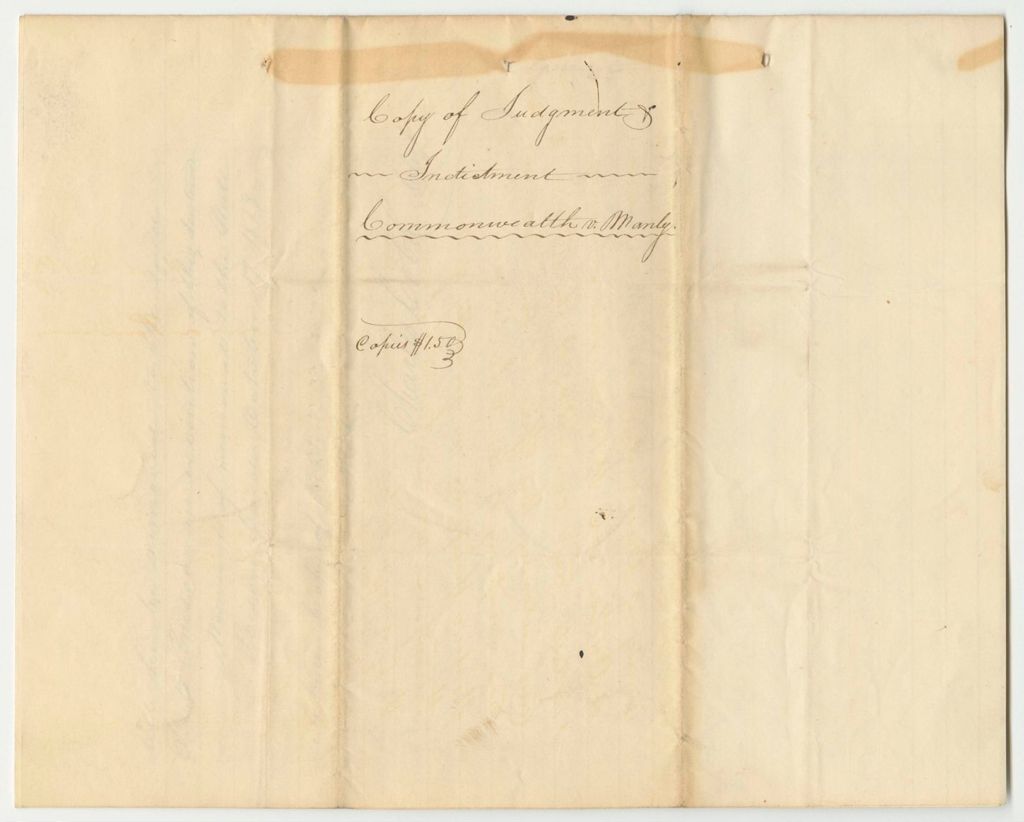 Copy of Judgment &
Indictment
Commonwealth v. Manly.
Copies $1.50